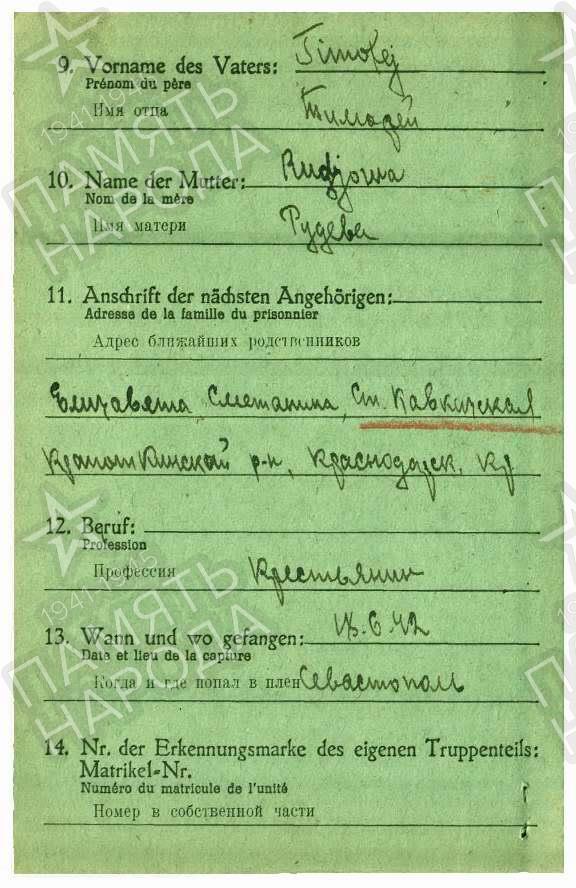 9. Vorname des Vaters: Timofej
Prénom du père
Имя отца Тимофей
10. Name der Mutter: Rudjowa
Nom de la mère
Имя матери Рудева
11. Anschrift der nächsten Angehörigen:
Adresse de la famille du prisonnier
Адрес ближайших родственников
Елизавета Сметанина, Ст. Кавказская
Кропоткинской р-н, Краснодарск. кр
12. Beruf:
Profession
Профессия Крестьянин
13. Wann und wo gefangen: 18.6.42
Date et lieu de la capture
Когда и где попал в плен Севастополь
14. Nr. der Erkennungsmarke des eigenen Truppenteils:
Matrikel=Nr.
Numéro du matricule de l'unité
Номер в собственной части
1941-1945
ПАМЯТЬ
НАРОДА